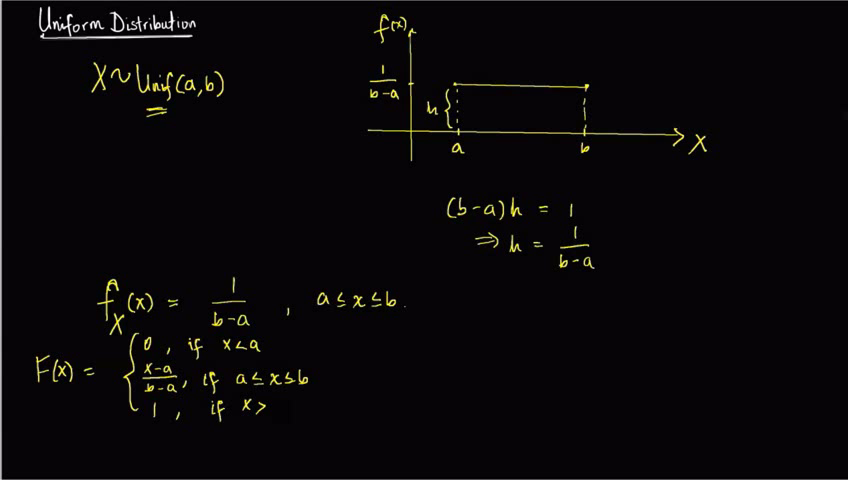 Uniform Distribution
X ~ Unif(a,b)
f(x)
1/(b-a)
h
a
b
X
(b-a)h = 1
⇒ h = 1/(b-a)
f_X(x) = 1/(b-a) , a ≤ x ≤ b.
F(x) = { 0 , if x < a
(x-a)/(b-a) , if a ≤ x ≤ b
1 , if x >